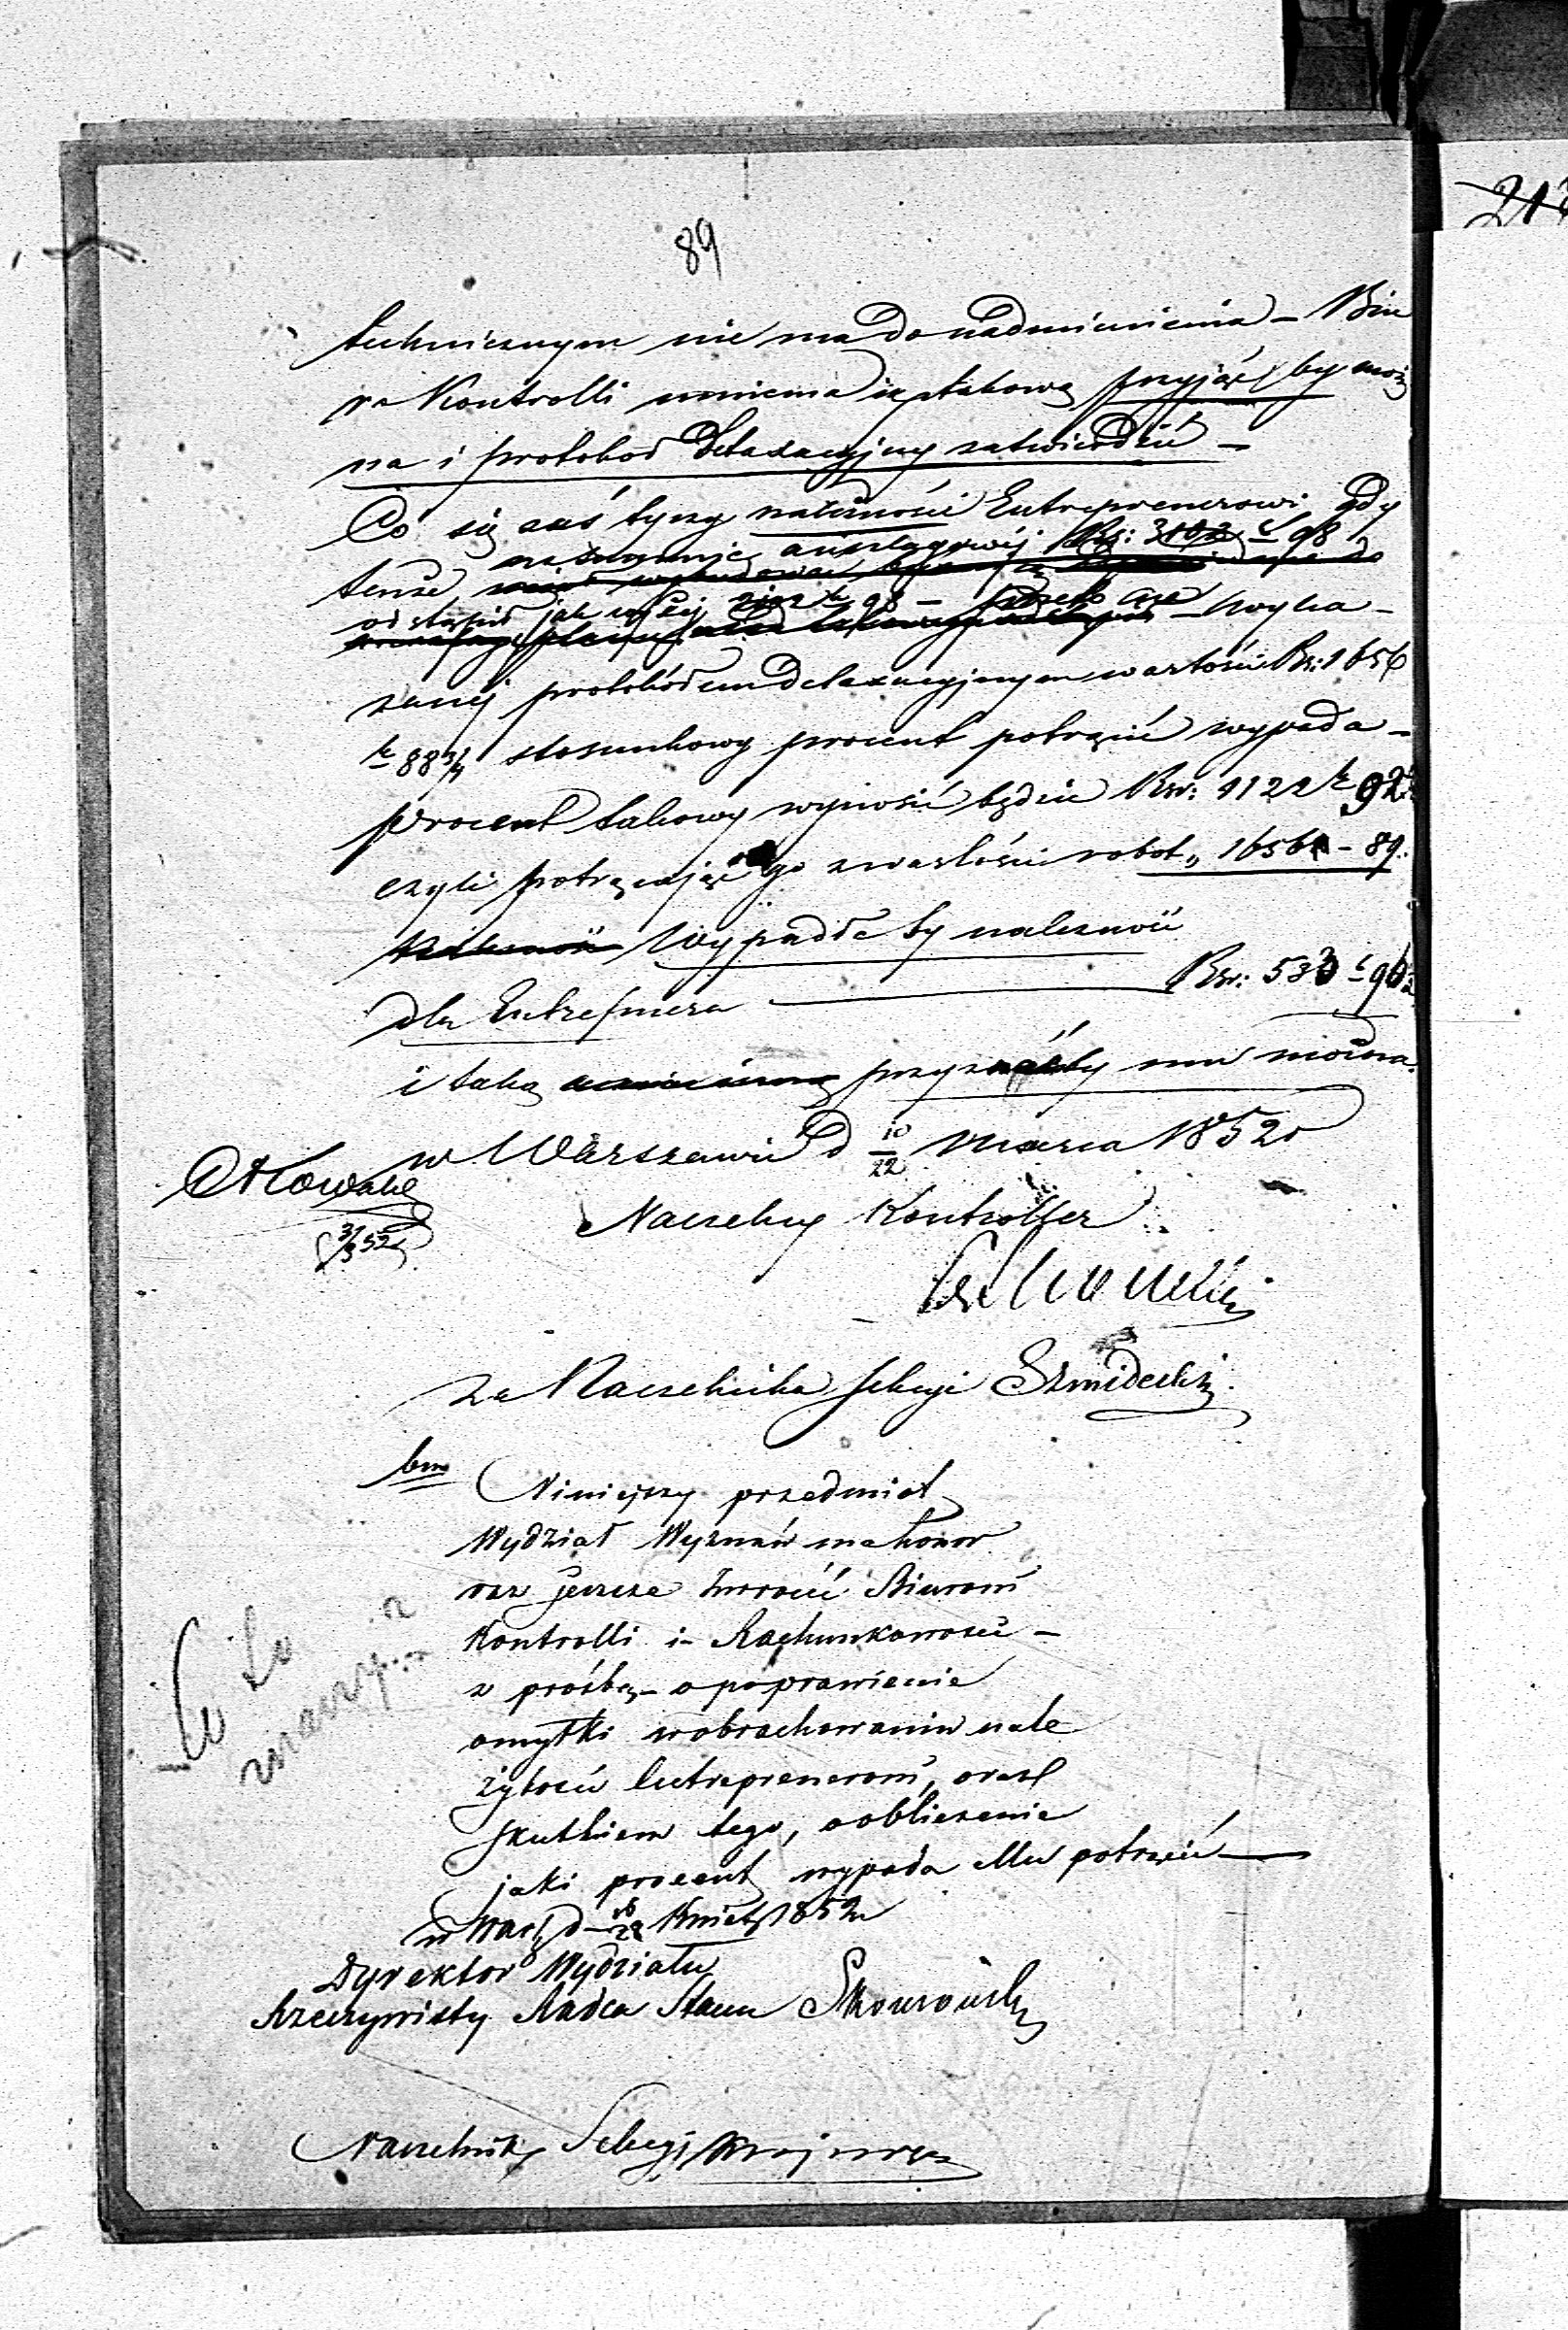 89
technicznym nie ma do nadmienienia – Biu
ro Kontrolli mniema iż takową przyjąć by moż
na i protokoł detaxacyjny zatwierdzić –
Co się zaś tyczy należności Entreprenerowi, gdy
tenże na summie anszlagowéj Rs: 3102 k 98
odstąpił jak wyżej – przeto
– wyka –
zanéj protokółem detaxacyjnym wartości Rs: 1656
k 88 3/4 stosunkowy procent potrącić wypada –
procent takowy wynosić będzie Rsr: 1122 k 92
czyli potrącając go z wartości robot „ 1656 – 89.
wypadło by należność
dla Entreprenera — Rsr: 533 k 96
i taką przyznać by mu można.
w Warszawie d 10/22 marca 1852 r
31/3 52
Naczelny Kontroller
za Naczelnika Sekcyi Szmidecki
bm
Niniejszy przedmiot
Wydział Wyznań ma honor
raz jeszcze zwrócić Biurom
Kontrolli i Rachunkowości –
z prośbą – o poprawienie
omyłki w obrachowaniu nale
żytości Entreprenerom, oraz
skutkiem tego, o obliczenie
jaki procent wypada Mu potrącić —
w Warsz d 16/28 Kwiet 1852 r
Co to
znaczy..?
Dyrektor Wydziału
Rzeczywisty Radca Stanu Skowroński
Naczelnik Sekcyi